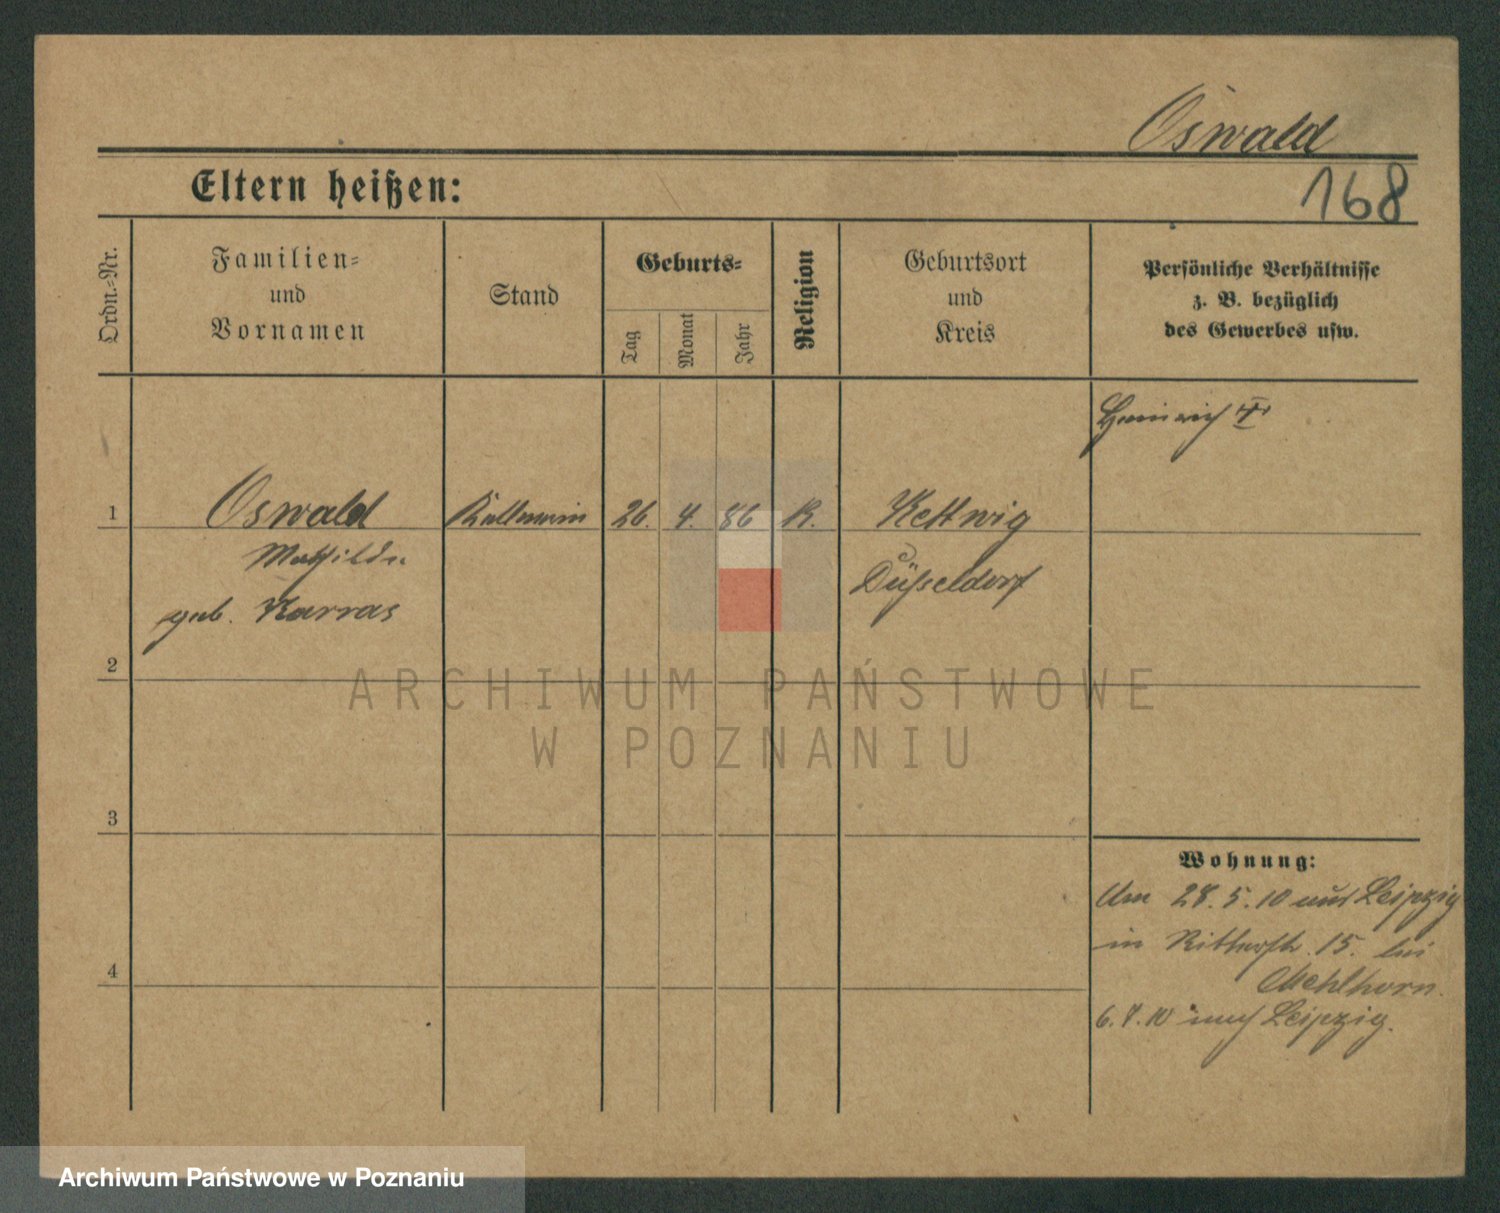 Oswald
Eltern heißen:
168
Ordn.-Nr.
Familien- und Vornamen
Stand
Geburts-
Tag
Monat
Jahr
Religion
Geburtsort und Kreis
Persönliche Verhältnisse
z. B. bezüglich
des Gewerbes usw.
Heinrich
1
Oswald
26. 4. 86
K.
Kettwig
Mathilde
Düsseldorf
geb. Karras
2
ARCHIWUM PAŃSTWOWE
W POZNANIU
3
Wohnung:
Am 28. 5. 10 aus Leipzig
in Ritterstr. 15. bei
Mehlhorn.
4
6. 7. 10 nach Leipzig.
Archiwum Państwowe w Poznaniu